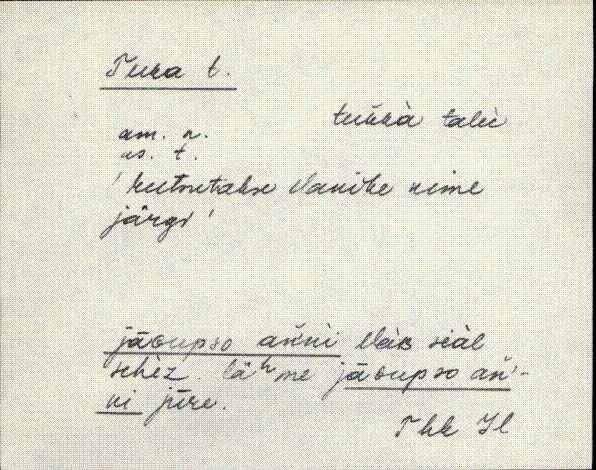 Tuka t.
tuk̆kà talù
am. n.
us. t.
'kutsutakse elanike nime
järgi'
jāoupso an̆nì elàʙ siàl
sehèz. lähme jāoupso an̆-
ni pēre.
Thk Jl